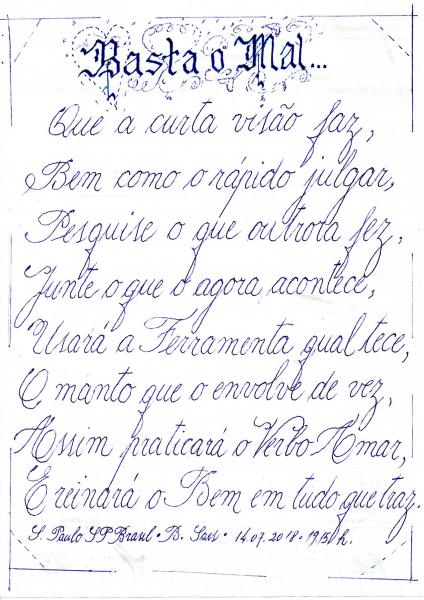 Basta o Mal...
Que a curta visão faz,
Bem como o rápido julgar,
Pesquise o que outrora fez,
Junte o que o agora acontece,
Usará a Ferramenta qual tece,
O manto que o envolve de vez,
Assim praticará o Verbo Amar,
E reinará o Bem em tudo que traz.
S. Paulo SP Brasil • B. • 14.07.2018 • h.